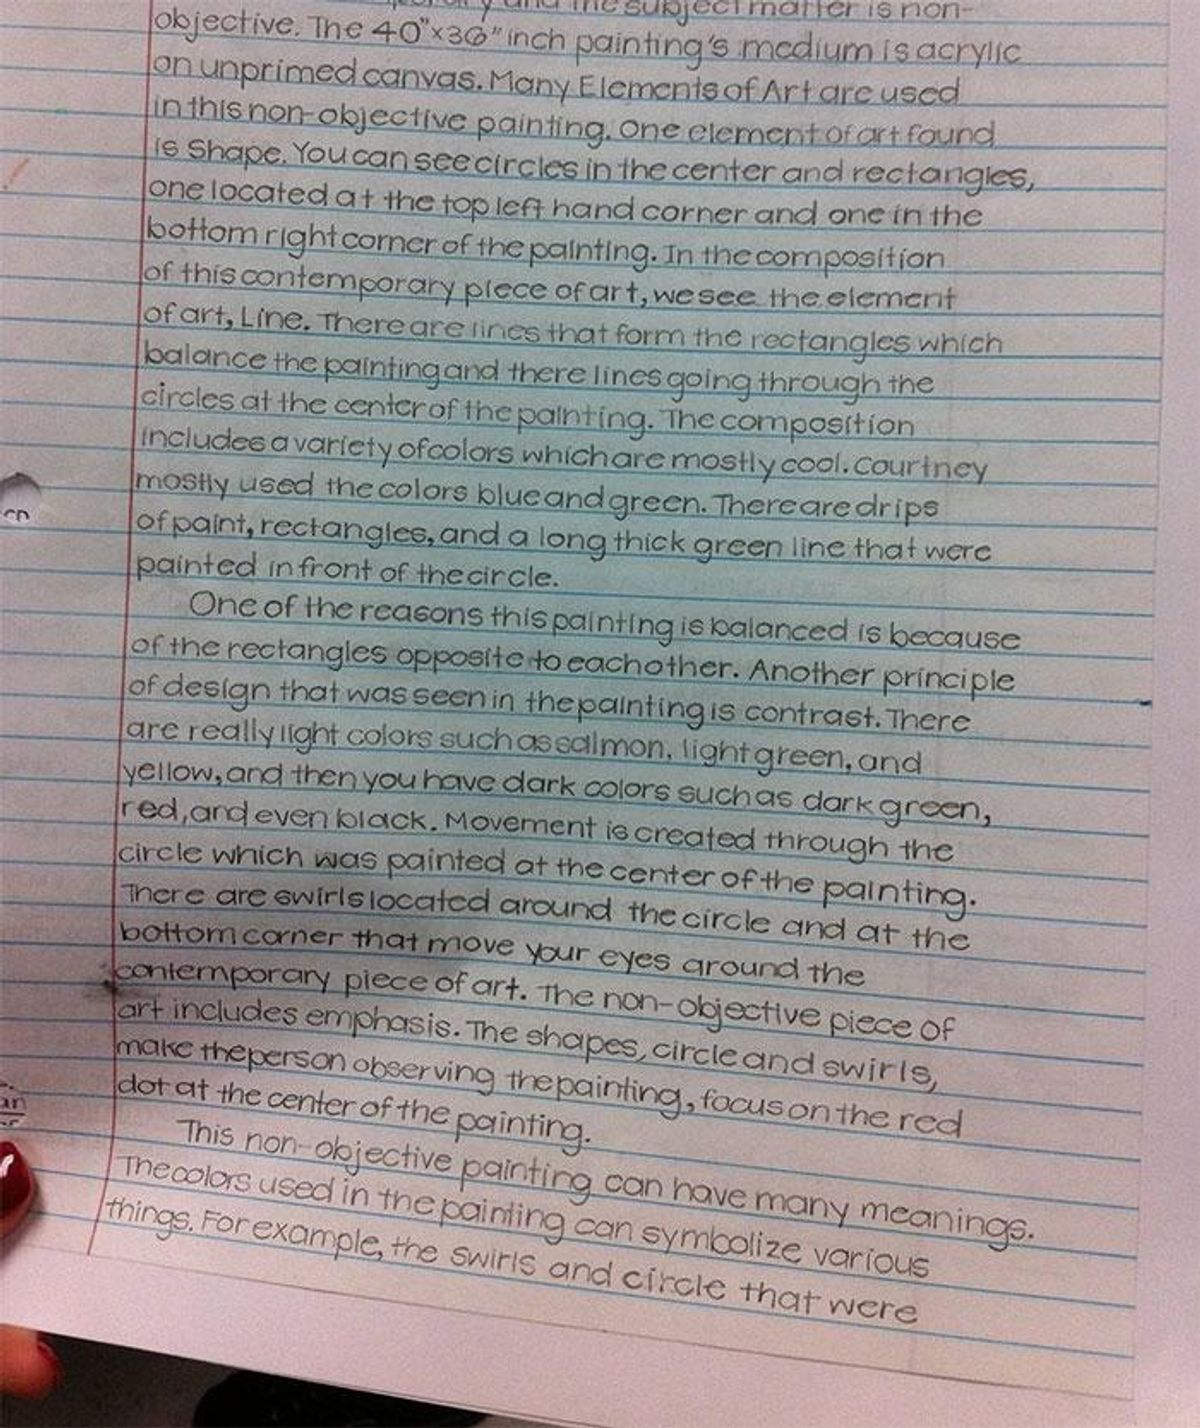 and the subject matter is non-
objective. The 40"x30" inch painting's medium is acrylic
on unprimed canvas. Many Elements of Art are used
in this non-objective painting. One element of art found
is Shape. You can see circles in the center and rectangles,
one located at the top left hand corner and one in the
bottom right corner of the painting. In the composition
of this contemporary piece of art, we see the element
of art, Line. There are lines that form the rectangles which
balance the painting and there lines going through the
circles at the center of the painting. The composition
includes a variety of colors which are mostly cool. Courtney
mostly used the colors blue and green. There are drips
of paint, rectangles, and a long thick green line that were
painted in front of the circle.
One of the reasons this painting is balanced is because
of the rectangles opposite to each other. Another principle
of design that was seen in the painting is contrast. There
are really light colors such as salmon, light green, and
yellow, and then you have dark colors such as dark green,
red, and even black. Movement is created through the
circle which was painted at the center of the painting.
There are swirls located around the circle and at the
bottom corner that move your eyes around the
contemporary piece of art. The non-objective piece of
art includes emphasis. The shapes, circle and swirls,
make the person observing the painting, focus on the red
dot at the center of the painting.
This non-objective painting can have many meanings.
The colors used in the painting can symbolize various
things. For example, the swirls and circle that were